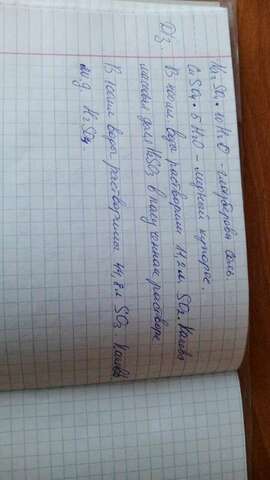 Na₂SO₄ · 10 H₂O - глауберова соль.
CuSO₄ · 5 H₂O - медный купорос.
Дз
В воды растворили 11,2 л. SO₂. Каковы
массовая доля H₂SO₃ в полученном растворе
В воды растворили 44,8 л SO₃. Какова
H₂SO₄.